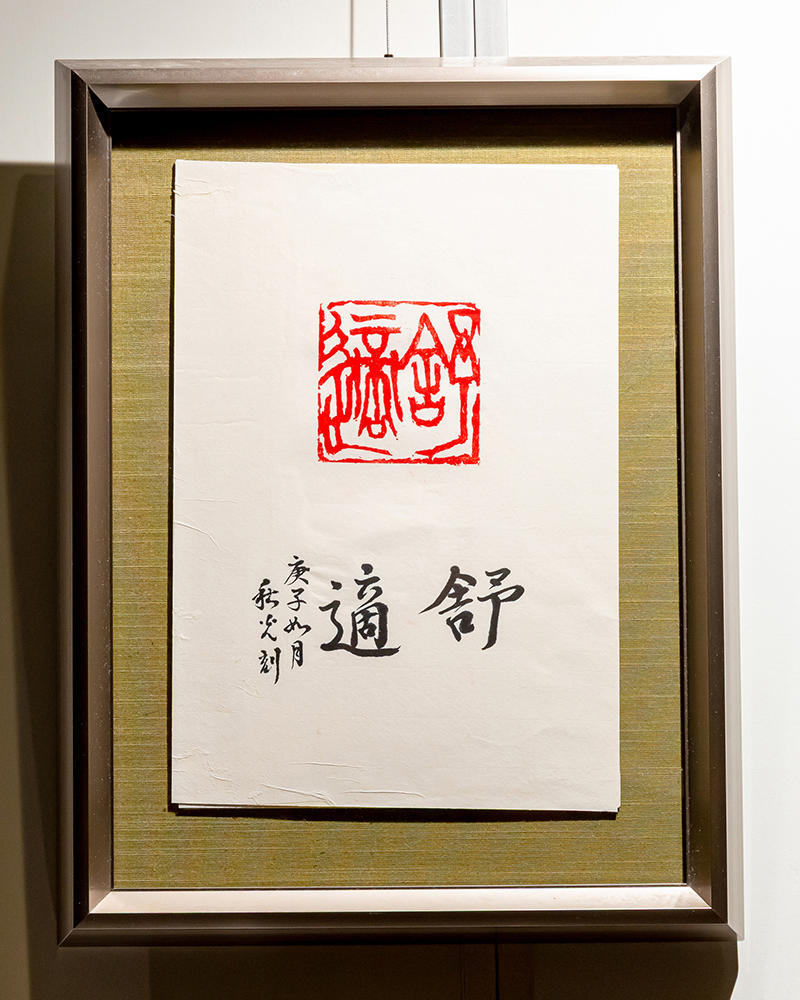 舒適
舒適
庚子如月
秋光刻